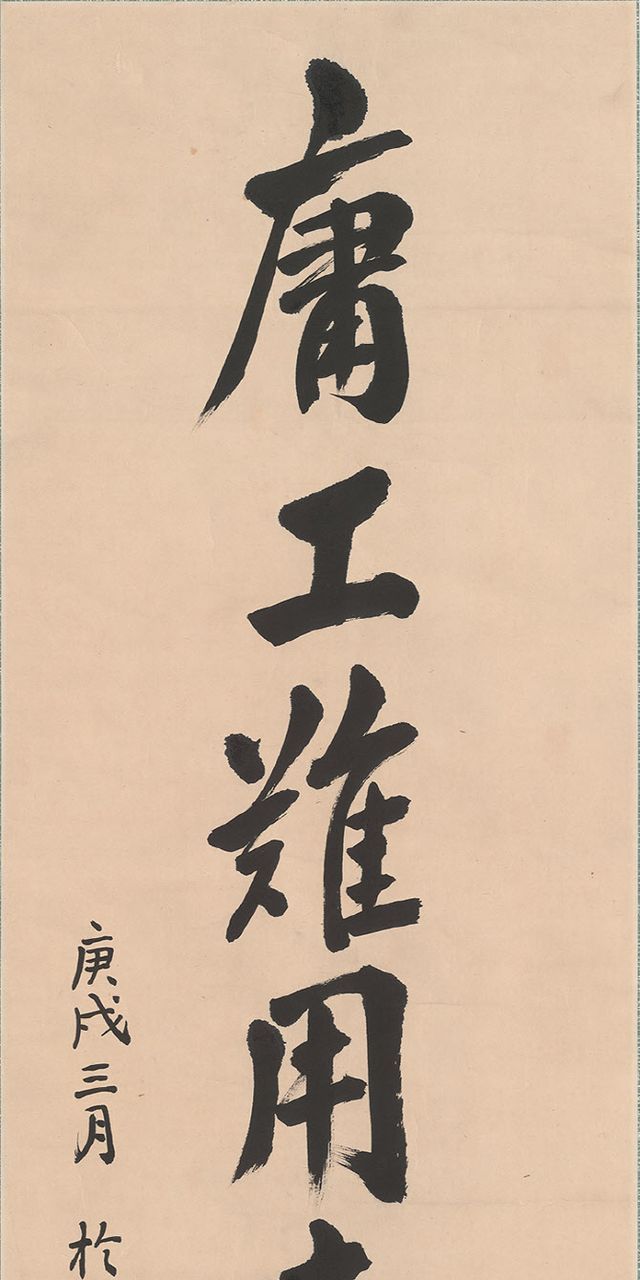 庸工難用
庚戌三月 於